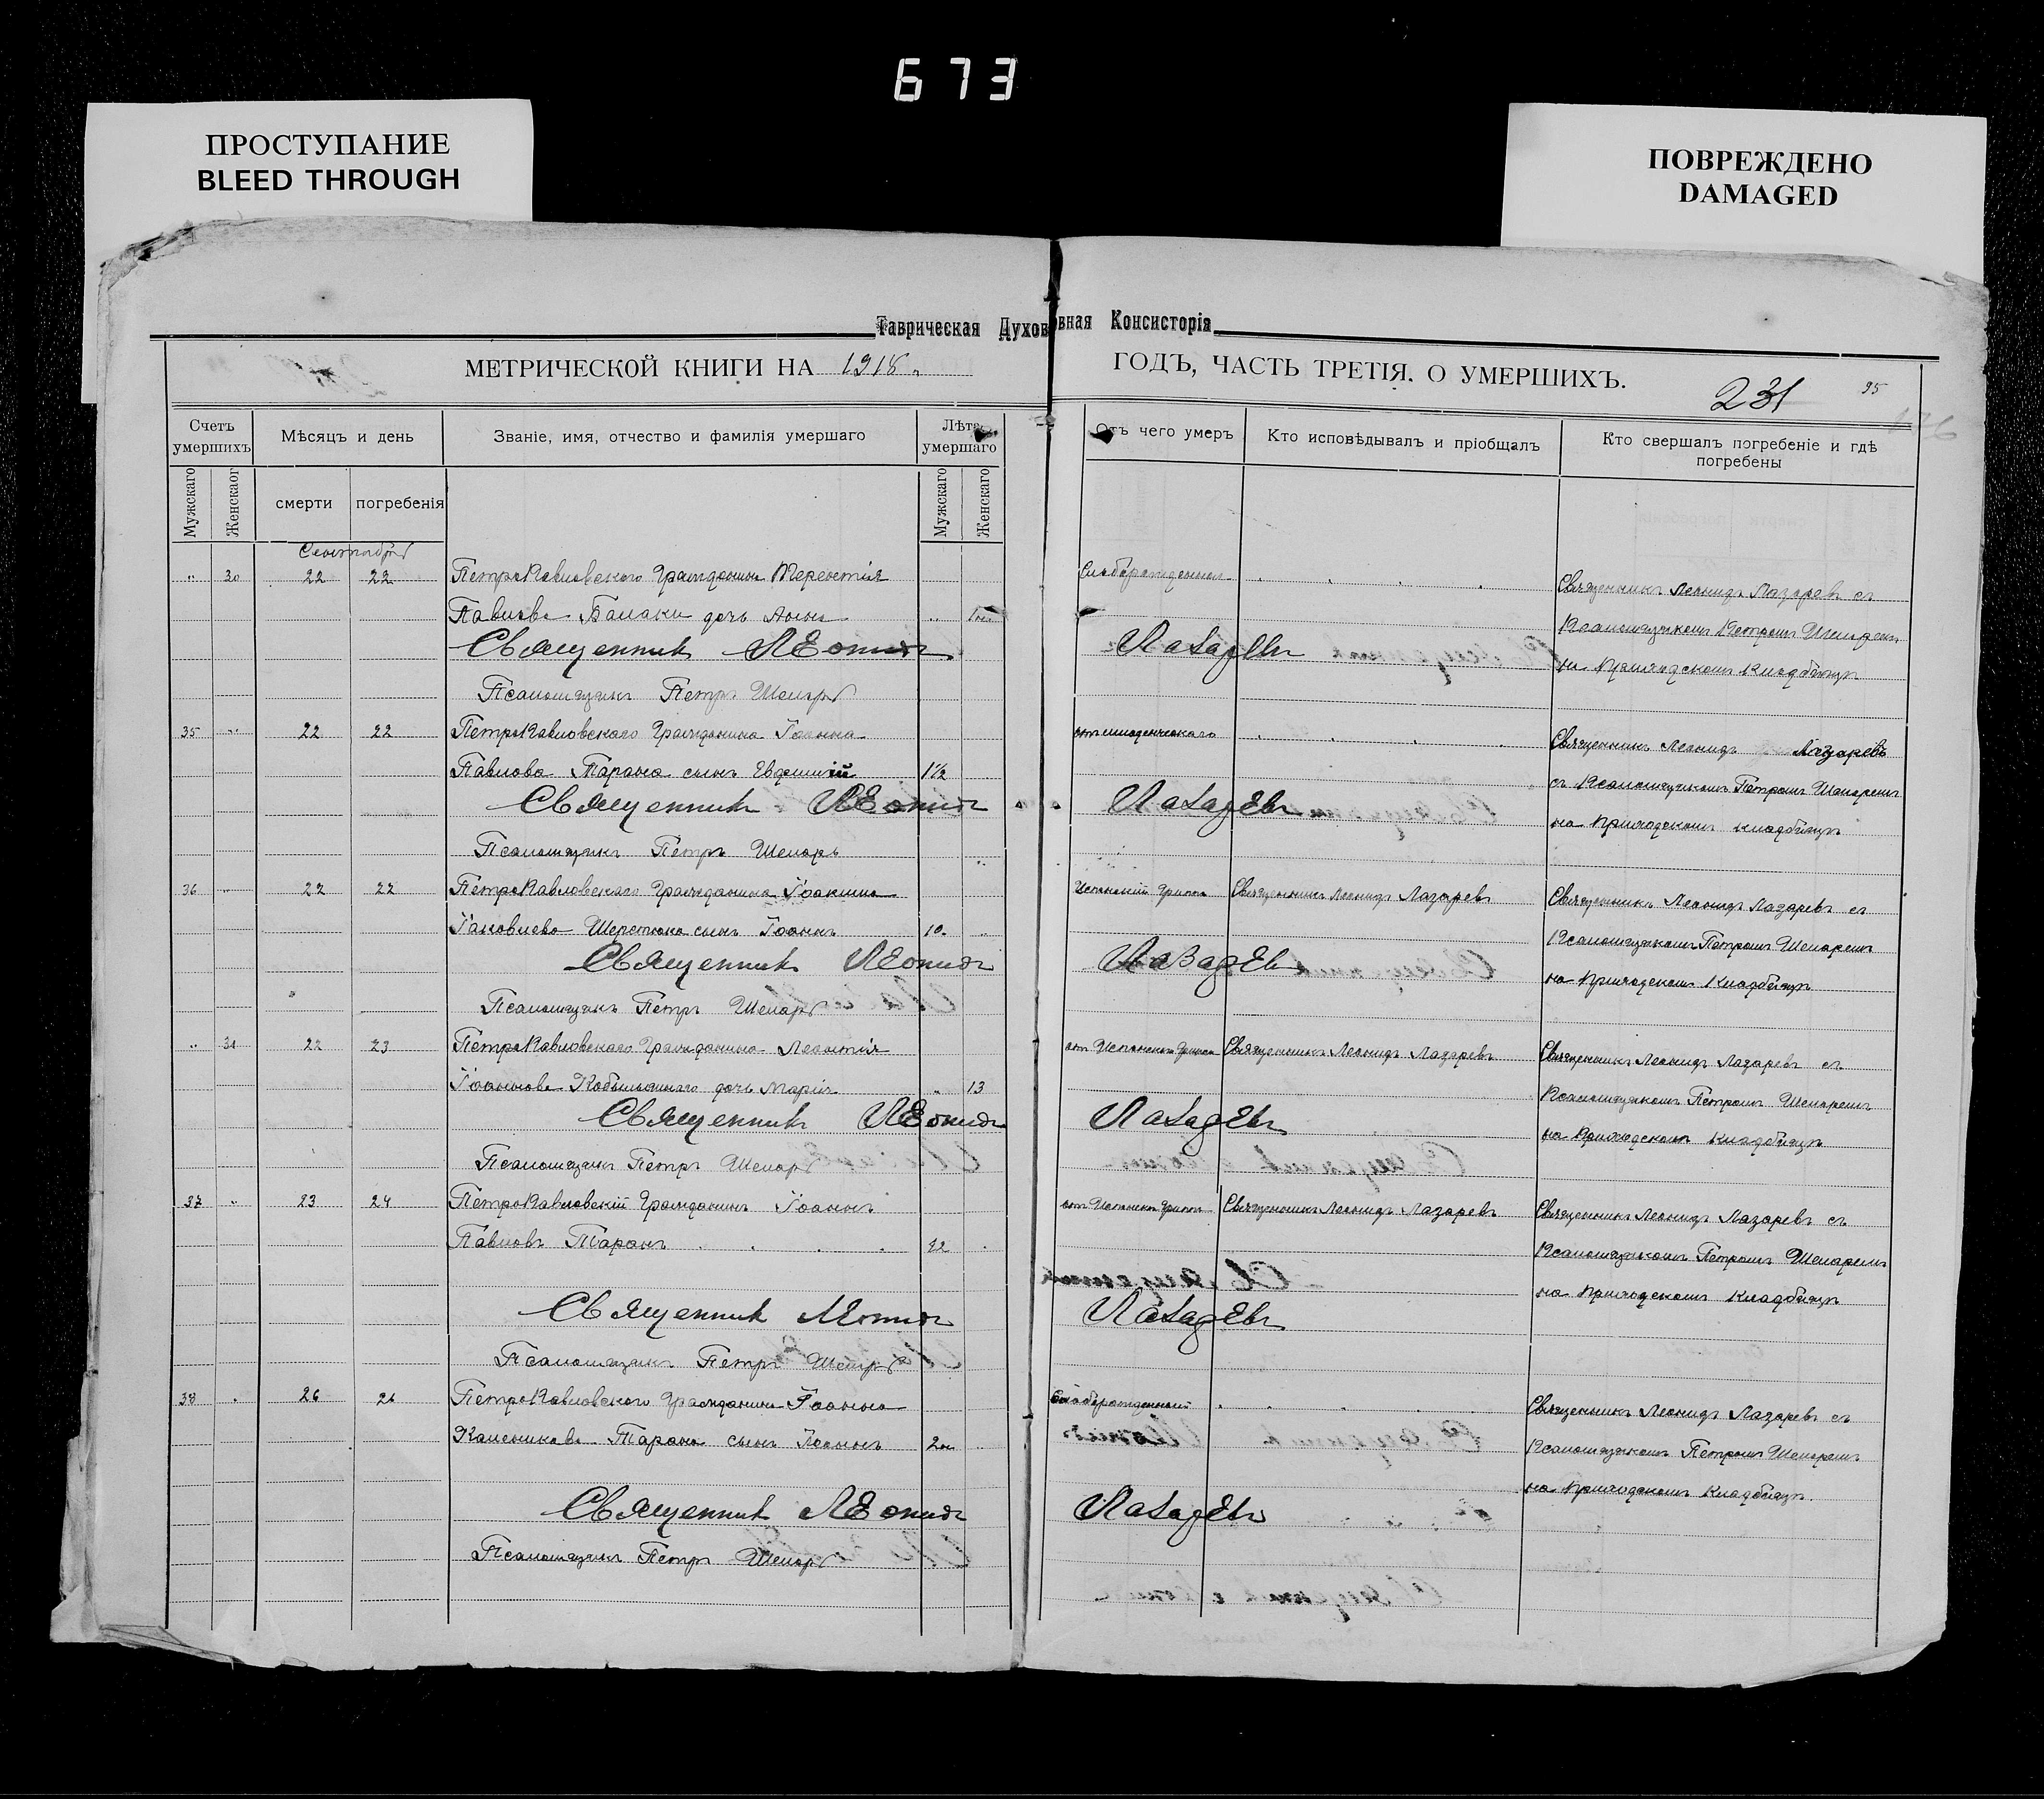 673
ПРОСТУПАНИЕ
BLEED THROUGH
ПОВРЕЖДЕНО
DAMAGED
Таврическая Духовная Консисторія
МЕТРИЧЕСКОЙ КНИГИ НА 1918 ГОДЪ, ЧАСТЬ ТРЕТІЯ. О УМЕРШИХЪ.
231
95
Счетъ умершихъ
Мѣсяцъ и день
Званіе, имя, отчество и фамилія умершаго
Лѣта умершаго
Отъ чего умеръ
Кто исповѣдывалъ и пріобщалъ
Кто свершалъ погребеніе и гдѣ погребены
Мужскаго
Женскаог
смерти
погребенія
Мужскаго
Женскаго
Сентябрь
30 22 22 ПетроПавловскаго Гражданина Терентія Слаборожденная Священникъ Леонидъ Лазаревъ съ
Павлова дочь Анны Псаломщикомъ Петромъ
Священникъ Леонидъ Лазаревъ на Приходскомъ Кладбищѣ
Псаломщикъ Петръ
35 22 22 ПетроПавловскаго Гражданина Іоанна отъ младенческаго Священникъ Леонидъ Лазаревъ
Павлова Тарана сынъ Евфимій 1½ съ Псаломщикомъ Петромъ
Священникъ Леонидъ Лазаревъ на Приходскомъ кладбищѣ
Псаломщикъ Петръ
36 22 22 ПетроПавловскаго Гражданина Іоакима Испанскій Гриппъ Священникъ Леонидъ Лазаревъ Священникъ Леонидъ Лазаревъ съ
Іаковлева Шерстюка сынъ Іоаннъ 10 Псаломщикомъ Петромъ
Священникъ Леонидъ Лазаревъ на Приходскомъ Кладбищѣ
Псаломщикъ Петръ
31 22 23 ПетроПавловскаго Гражданина Леонтія отъ Испанскаго Гриппа Священникъ Леонидъ Лазаревъ Священникъ Леонидъ Лазаревъ съ
Іоаннова дочь Марія 13 Псаломщикомъ Петромъ
Священникъ Леонидъ Лазаревъ на Приходскомъ кладбищѣ
Псаломщикъ Петръ
37 23 24 ПетроПавловскій Гражданинъ Іоаннъ Священникъ Леонидъ Лазаревъ Священникъ Леонидъ Лазаревъ съ
Павловъ Таранъ 42 Псаломщикомъ Петромъ
на Приходскомъ Кладбищѣ
Священникъ Леонидъ Лазаревъ
Псаломщикъ Петръ
38 26 26 ПетроПавловскаго Гражданина Іоанна Слаборожденный Священникъ Леонидъ Лазаревъ съ
Тарана сынъ Іоаннъ Псаломщикомъ Петромъ
на Приходскомъ Кладбищѣ.
Священникъ Леонидъ Лазаревъ
Псаломщикъ Петръ